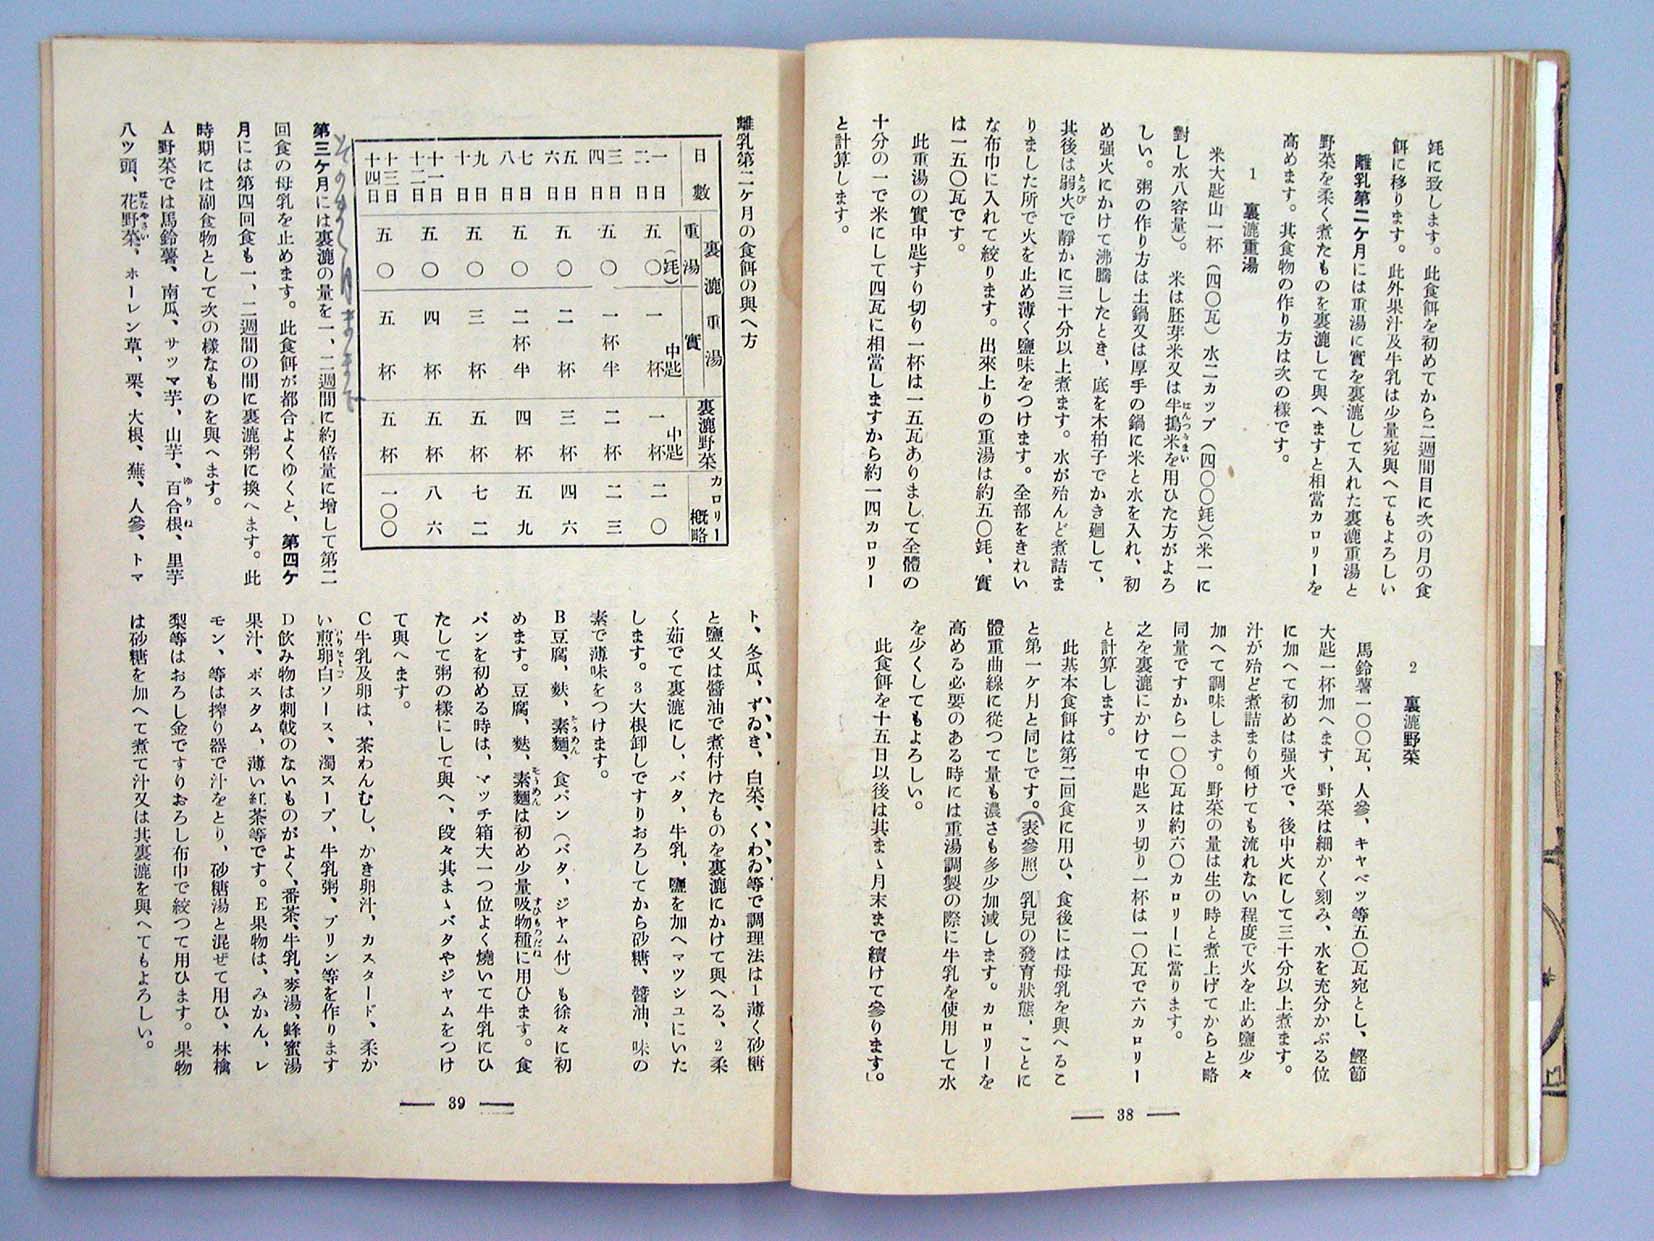 竓に致します。此食餌を初めてから二週間目に次の月の食
餌に移ります。此外果汁及牛乳は少量宛與へてもよろしい
離乳第二ケ月には重湯に實を裏漉して入れた裏漉重湯と
野菜を柔く煮たものを裏漉して與へますと相當カロリーを
高めます。其食物の作り方は次の様です。
1 裏漉重湯
米大匙山一杯（四〇瓦）水二カップ（四〇〇竓）（米一に
對し水八容量）。 米は胚芽米又は半搗米を用ひた方がよろ
しい。粥の作り方は土鍋又は厚手の鍋に米と水を入れ、初
め强火にかけて沸騰したとき、底を木柏子でかき廻して、
其後は弱火で靜かに三十分以上煮ます。水が殆んど煮詰ま
りました所で火を止め薄く鹽味をつけます。全部をきれい
な布巾に入れて絞ります。出來上りの重湯は約五〇竓、實
は一五〇瓦です。
此重湯の實中匙すり切り一杯は一五瓦ありまして全體の
十分の一で米にして四瓦に相當しますから約一四カロリー
と計算します。
2 裏漉野菜
馬鈴薯一〇〇瓦、人參、キャベツ等五〇瓦宛とし、鰹節
大匙一杯加へます、野菜は細かく刻み、水を充分かぶる位
に加へて初めは强火で、後中火にして三十分以上煮ます。
汁が殆ど煮詰まり傾けても流れない程度で火を止め鹽少々
加へて調味します。野菜の量は生の時と煮上げてからと略
同量ですから一〇〇瓦は約六〇カロリーに當ります。
之を裏漉にかけて中匙スリ切り一杯は一〇瓦で六カロリー
と計算します。
此基本食餌は第二回食に用ひ、食後には母乳を與へるこ
と第一ケ月と同じです。（表參照）乳兒の發育狀態、ことに
體重曲線に從つて量も濃さも多少加減します。カロリーを
高める必要のある時には重湯調製の際に牛乳を使用して水
を少くしてもよろしい。
此食餌を十五日以後は其まゝ月末まで續けて參ります」。
38
離乳第二ケ月の食餌の與へ方
日數 裏漉重湯 裏漉野菜 カロリー概略
重湯（竓） 實 中匙 中匙
一日 二日 五〇 一杯 一杯 二〇
三日 四日 五〇 一杯半 二杯 二三
五日 六日 五〇 二杯 三杯 四六
七日 八日 五〇 二杯半 四杯 五九
九日 十日 五〇 三杯 五杯 七二
十一日 十二日 五〇 四杯 五杯 八六
十三日 十四日 五〇 五杯 五杯 一〇〇
第三ケ月には裏漉の量を一、二週間に約倍量に增して第二
回食の母乳を止めます。此食餌が都合よくゆくと、第四ケ
月には第四回食も一、二週間の間に裏漉粥に換へます。此
時期には副食物として次の樣なものを與へます。
A野菜では馬鈴薯、南瓜、サツマ芋、山芋、百合根、里芋
八ツ頭、花野菜、ホーレン草、栗、大根、蕪、人參、トマ
ト、冬瓜、ずゐき、白菜、くわゐ等で調理法は1薄く砂糖
と鹽又は醬油で煮付けたものを裏漉にかけて與へる、2柔
く茹でて裏漉にし、バタ、牛乳、鹽を加へマツシユにいた
します。3大根卸しですりおろしてから砂糖、醬油、味の
素で薄味をつけます。
B豆腐、麩、素麵、食パン（バタ、ジヤム付）も徐々に初
めます。豆腐、麩、素麵は初め少量吸物種に用ひます。食
パンを初める時は、マッチ箱大一つ位よく燒いて牛乳にひ
たして粥の樣にして與へ、段々其まゝバタやジヤムをつけ
て與へます。
C牛乳及卵は、茶わんむし、かき卵汁、カスタード、柔か
い煎卵白ソース、濁スープ、牛乳粥、プリン等を作ります
D飮み物は刺戟のないものがよく、番茶、牛乳、麥湯、蜂蜜湯
果汁、ポスタム、薄い紅茶等です。E果物は、みかん、レ
モン、等は搾り器で汁をとり、砂糖湯と混ぜて用ひ、林檎
梨等はおろし金ですりおろし布巾で絞つて用ひます。果物
は砂糖を加へて煮て汁又は其裏漉を與へてもよろしい。
39